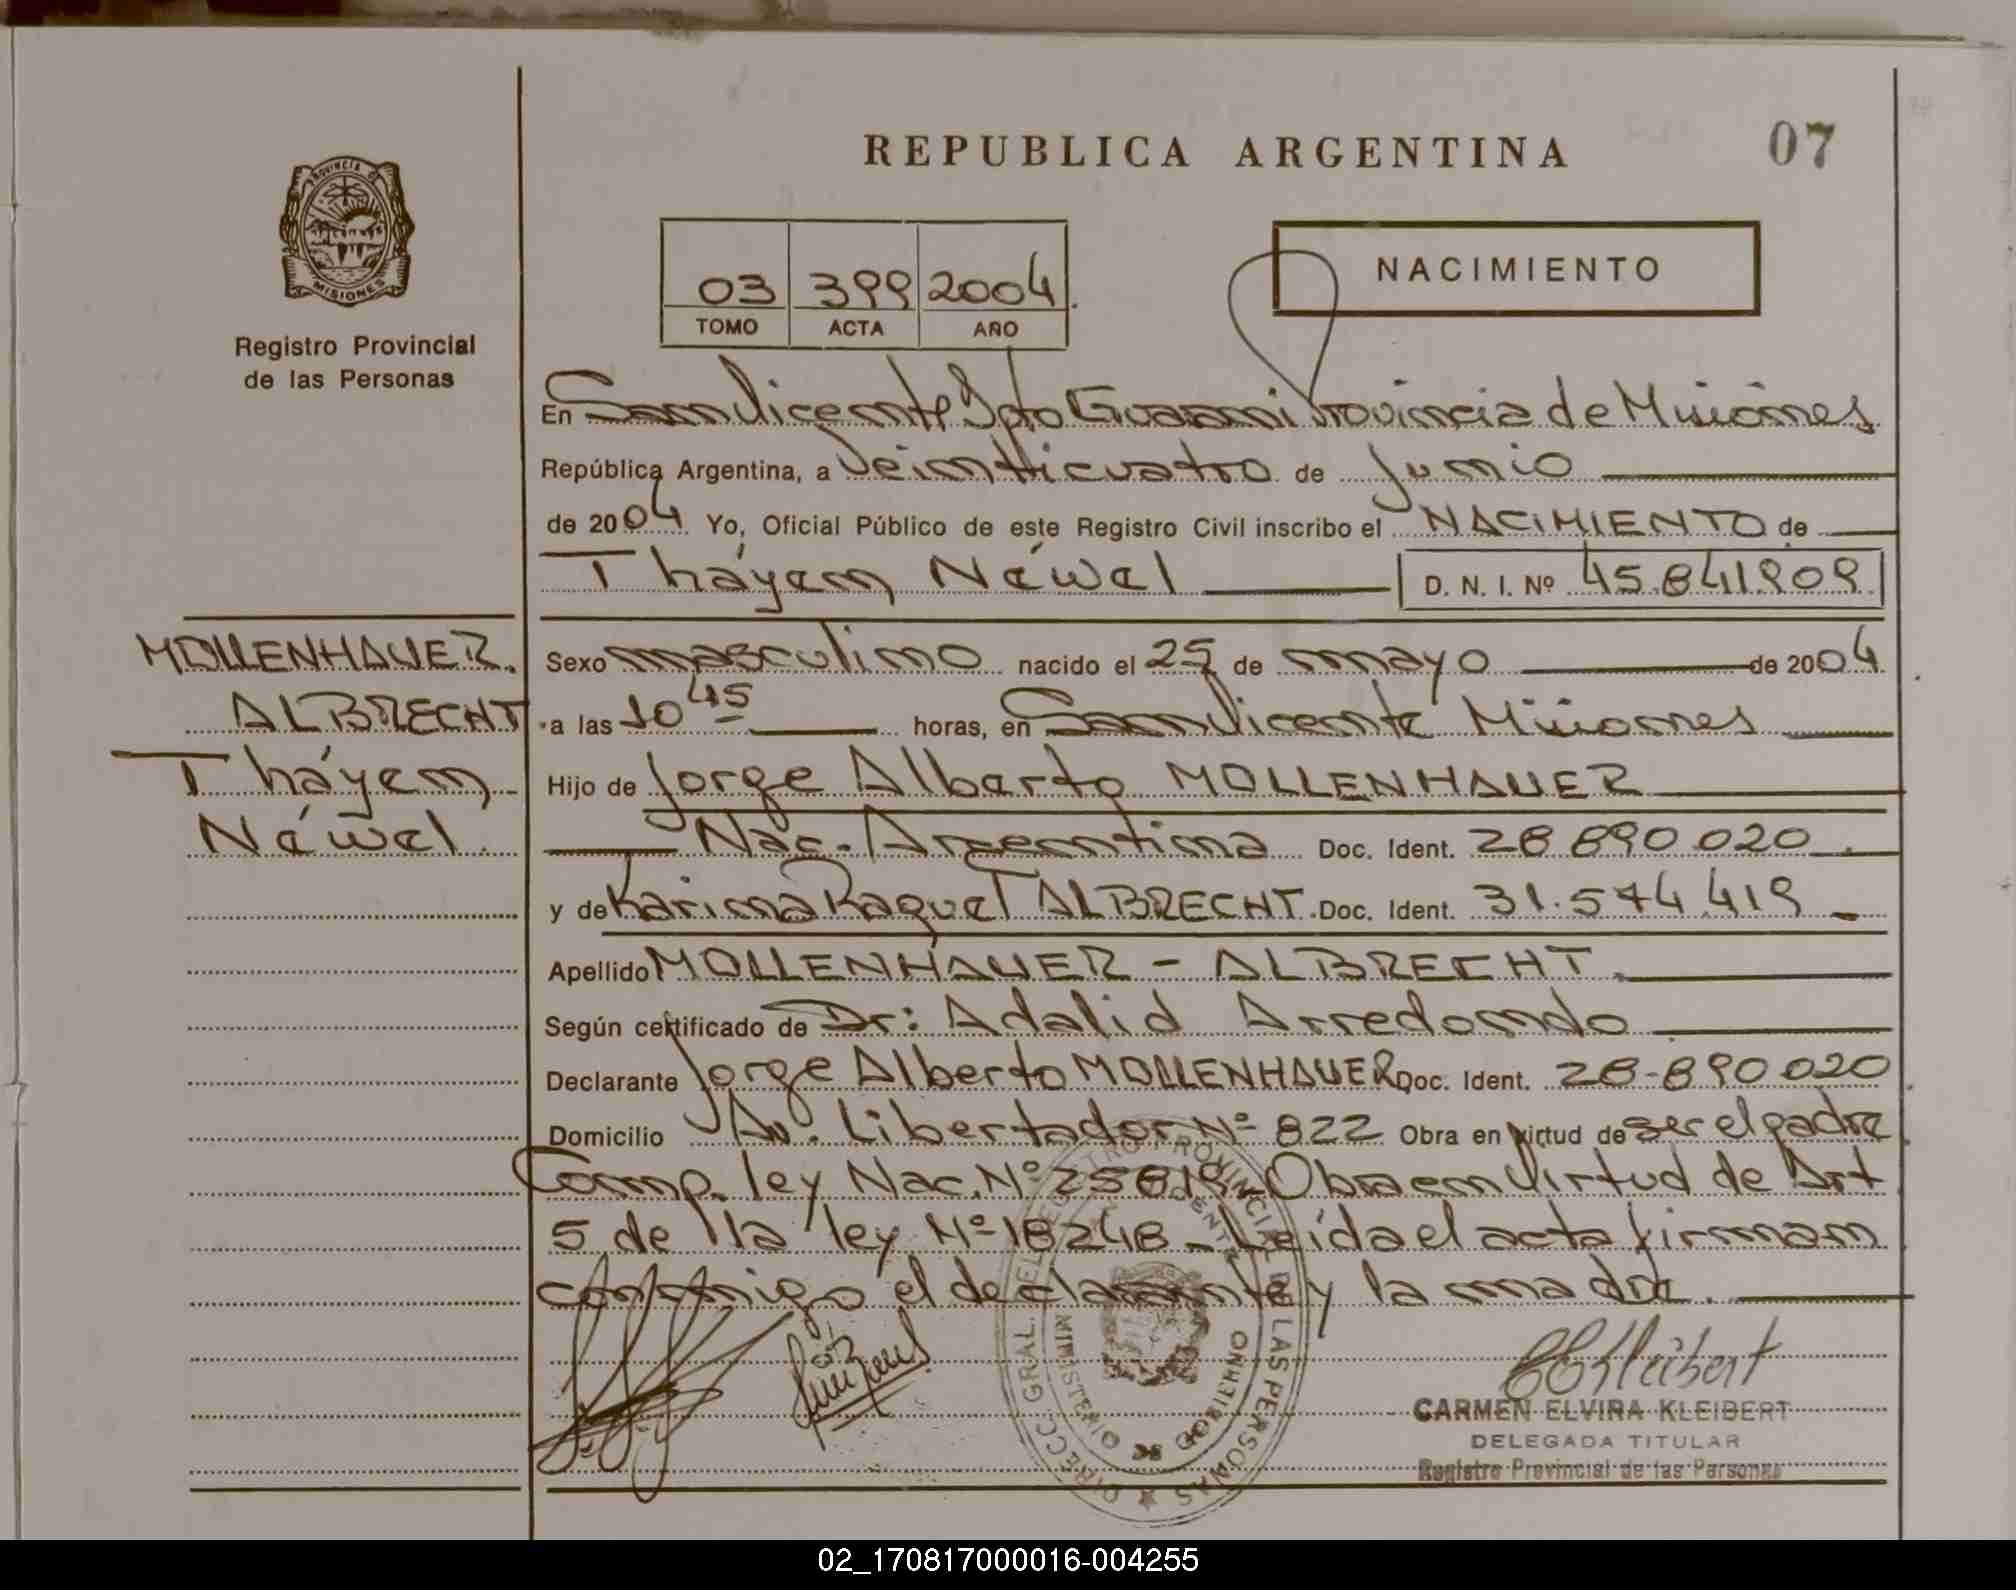 REPUBLICA ARGENTINA
07
PROVINCIA DE
MISIONES
Registro Provincial
de las Personas
03 399 2004
TOMO ACTA AÑO
NACIMIENTO
En San Vicente Dpto Guarani Provincia de Misiones
República Argentina, a Veinticuatro de Junio
de 2004 Yo, Oficial Público de este Registro Civil inscribo el NACIMIENTO de
Tháyem Néwel D. N. I. Nº 45.841.909
MOLLENHAUER
ALBRECHT
Tháyem
Néwel
Sexo masculino nacido el 25 de mayo de 2004
a las 10 45 horas, en San Vicente Misiones
Hijo de Jorge Alberto MOLLENHAUER
Nac. Argentina Doc. Ident. 28.890.020
y de Karina Raquel ALBRECHT. Doc. Ident. 31.574.419
Apellido MOLLENHAUER - ALBRECHT
Según certificado de Dr: Adalid Arredondo
Declarante Jorge Alberto MOLLENHAUER Doc. Ident. 28.890.020
Domicilio Av. Libertador Nº 822 Obra en virtud de ser el padre
Comp. ley Nac. Nº 25819 - Obra en Virtud de Art
5 de la ley Nº 18248 - Leída el acta firman
conmigo el declarante y la madre.
DIRECC. GRAL. DEL REGISTRO PROVINCIAL DE LAS PERSONAS
MINISTERIO DE GOBIERNO
CARMEN ELVIRA KLEIBERT
DELEGADA TITULAR
Registro Provincial de las Personas
02_170817000016-004255